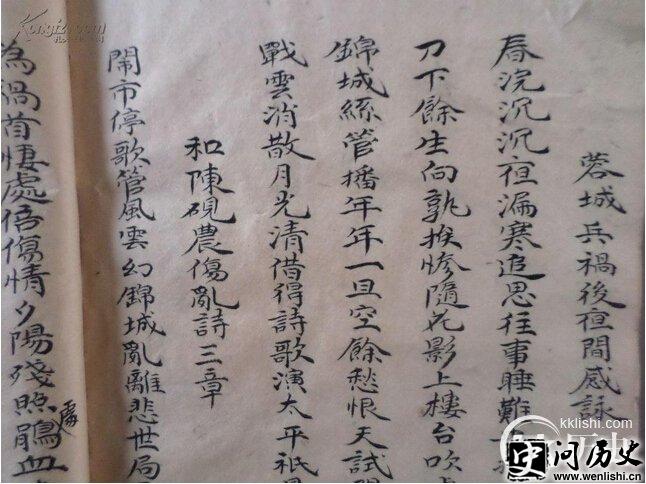 蓉城兵禍後夜間感詠
春浣沉沉夜漏寒追思往事睡難
刀下餘生向孰挨慘隨花影上樓台吹
錦城絲管播年年一旦空餘愁恨天試
戰雲消散月光清借得詩歌演太平祇
和陳硯農傷亂詩三章
鬧市停歌管風雲幻錦城亂離悲世局
為禍首悽處倍傷情夕陽殘照鵑血
處
Kongfz.com
kklishi.com
中问历史
www.wenlishi.cn